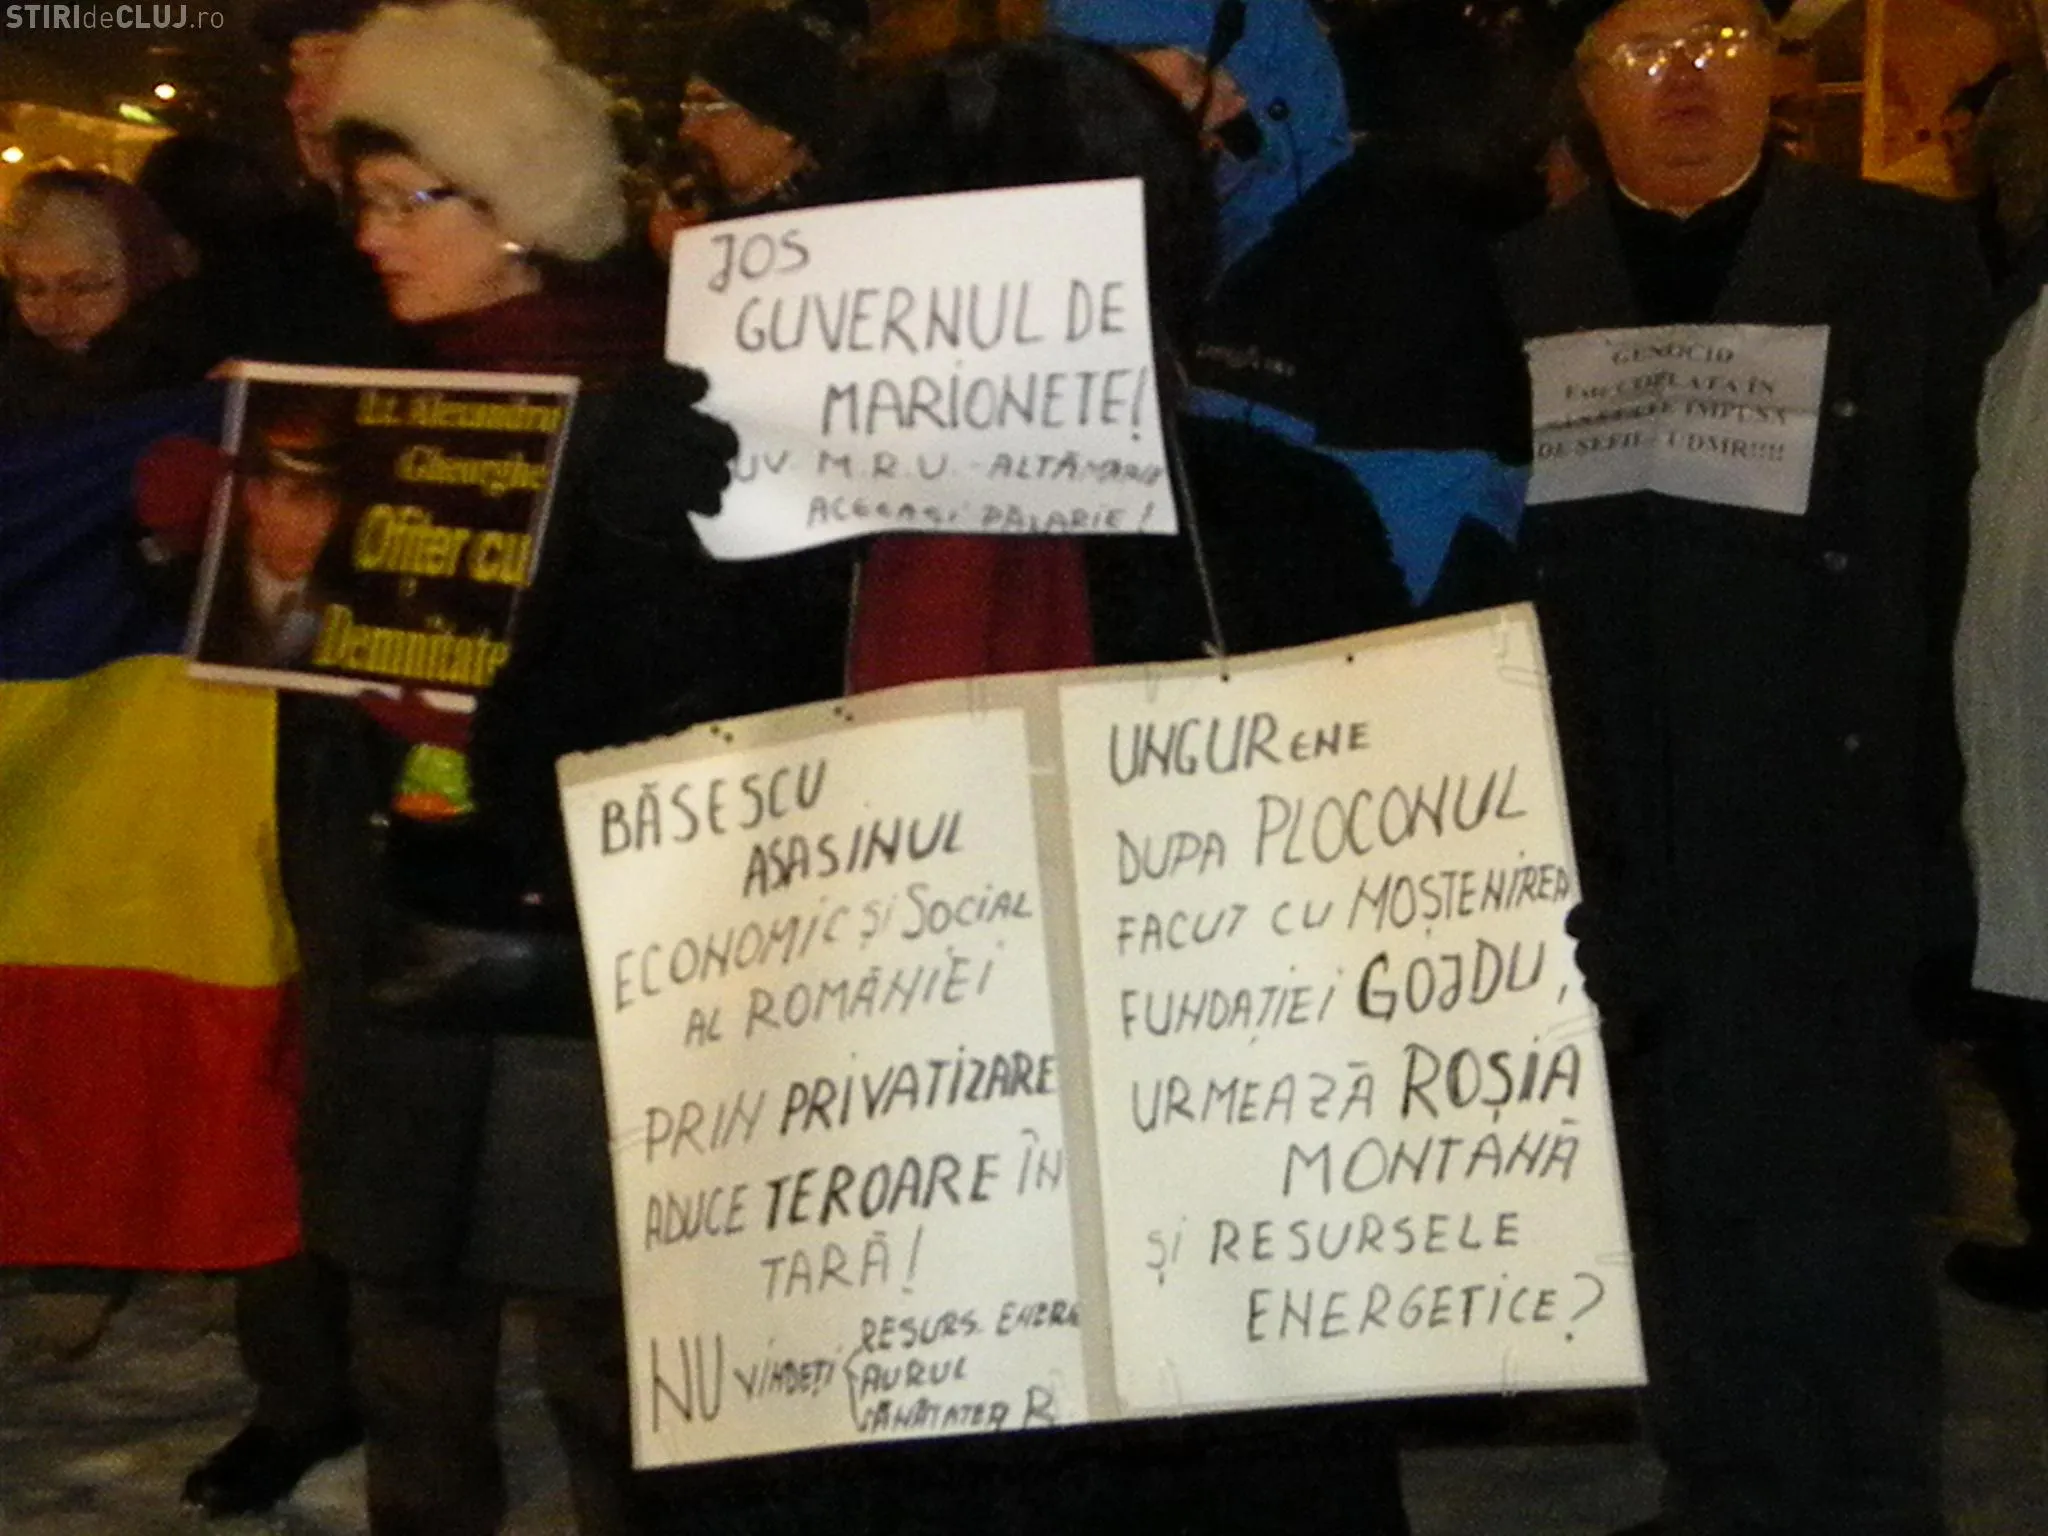 STIRIdeCLUJ.ro
JOS
GUVERNUL DE
MARIONETE!
M.R.U. - ALTĂ
ACEEAȘI PĂLĂRIE!
Lt. Alexandru
Gheorghe
Ofițer cu
Demnitate
GENOCID
Este COPLATA ÎN
IMPUSA
DE SEFII - UDMR!!!!
BĂSESCU
ASASINUL
ECONOMIC ȘI SOCIAL
AL ROMÂNIEI
PRIN PRIVATIZARE
ADUCE TEROARE ÎN
TARĂ!
NU VINDEȚI
RESURS. ENERG
AURUL
SĂNĂTATEA R
UNGURENE
DUPA PLOCONUL
FACUT CU MOȘTENIREA
FUNDAȚIEI GOJDU,
URMEAZĂ ROȘIA
MONTANĂ
ȘI RESURSELE
ENERGETICE?